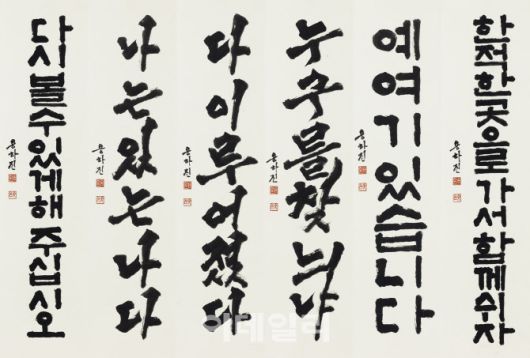 한적한곳으로가서함께쉬자
용하진
예여기있습니다
용하진
누구를찾늬냐
용하진
다이루어졌다
용하진
나는있는나다
용하진
다시볼수있게해주십시오
용하진
이데일리